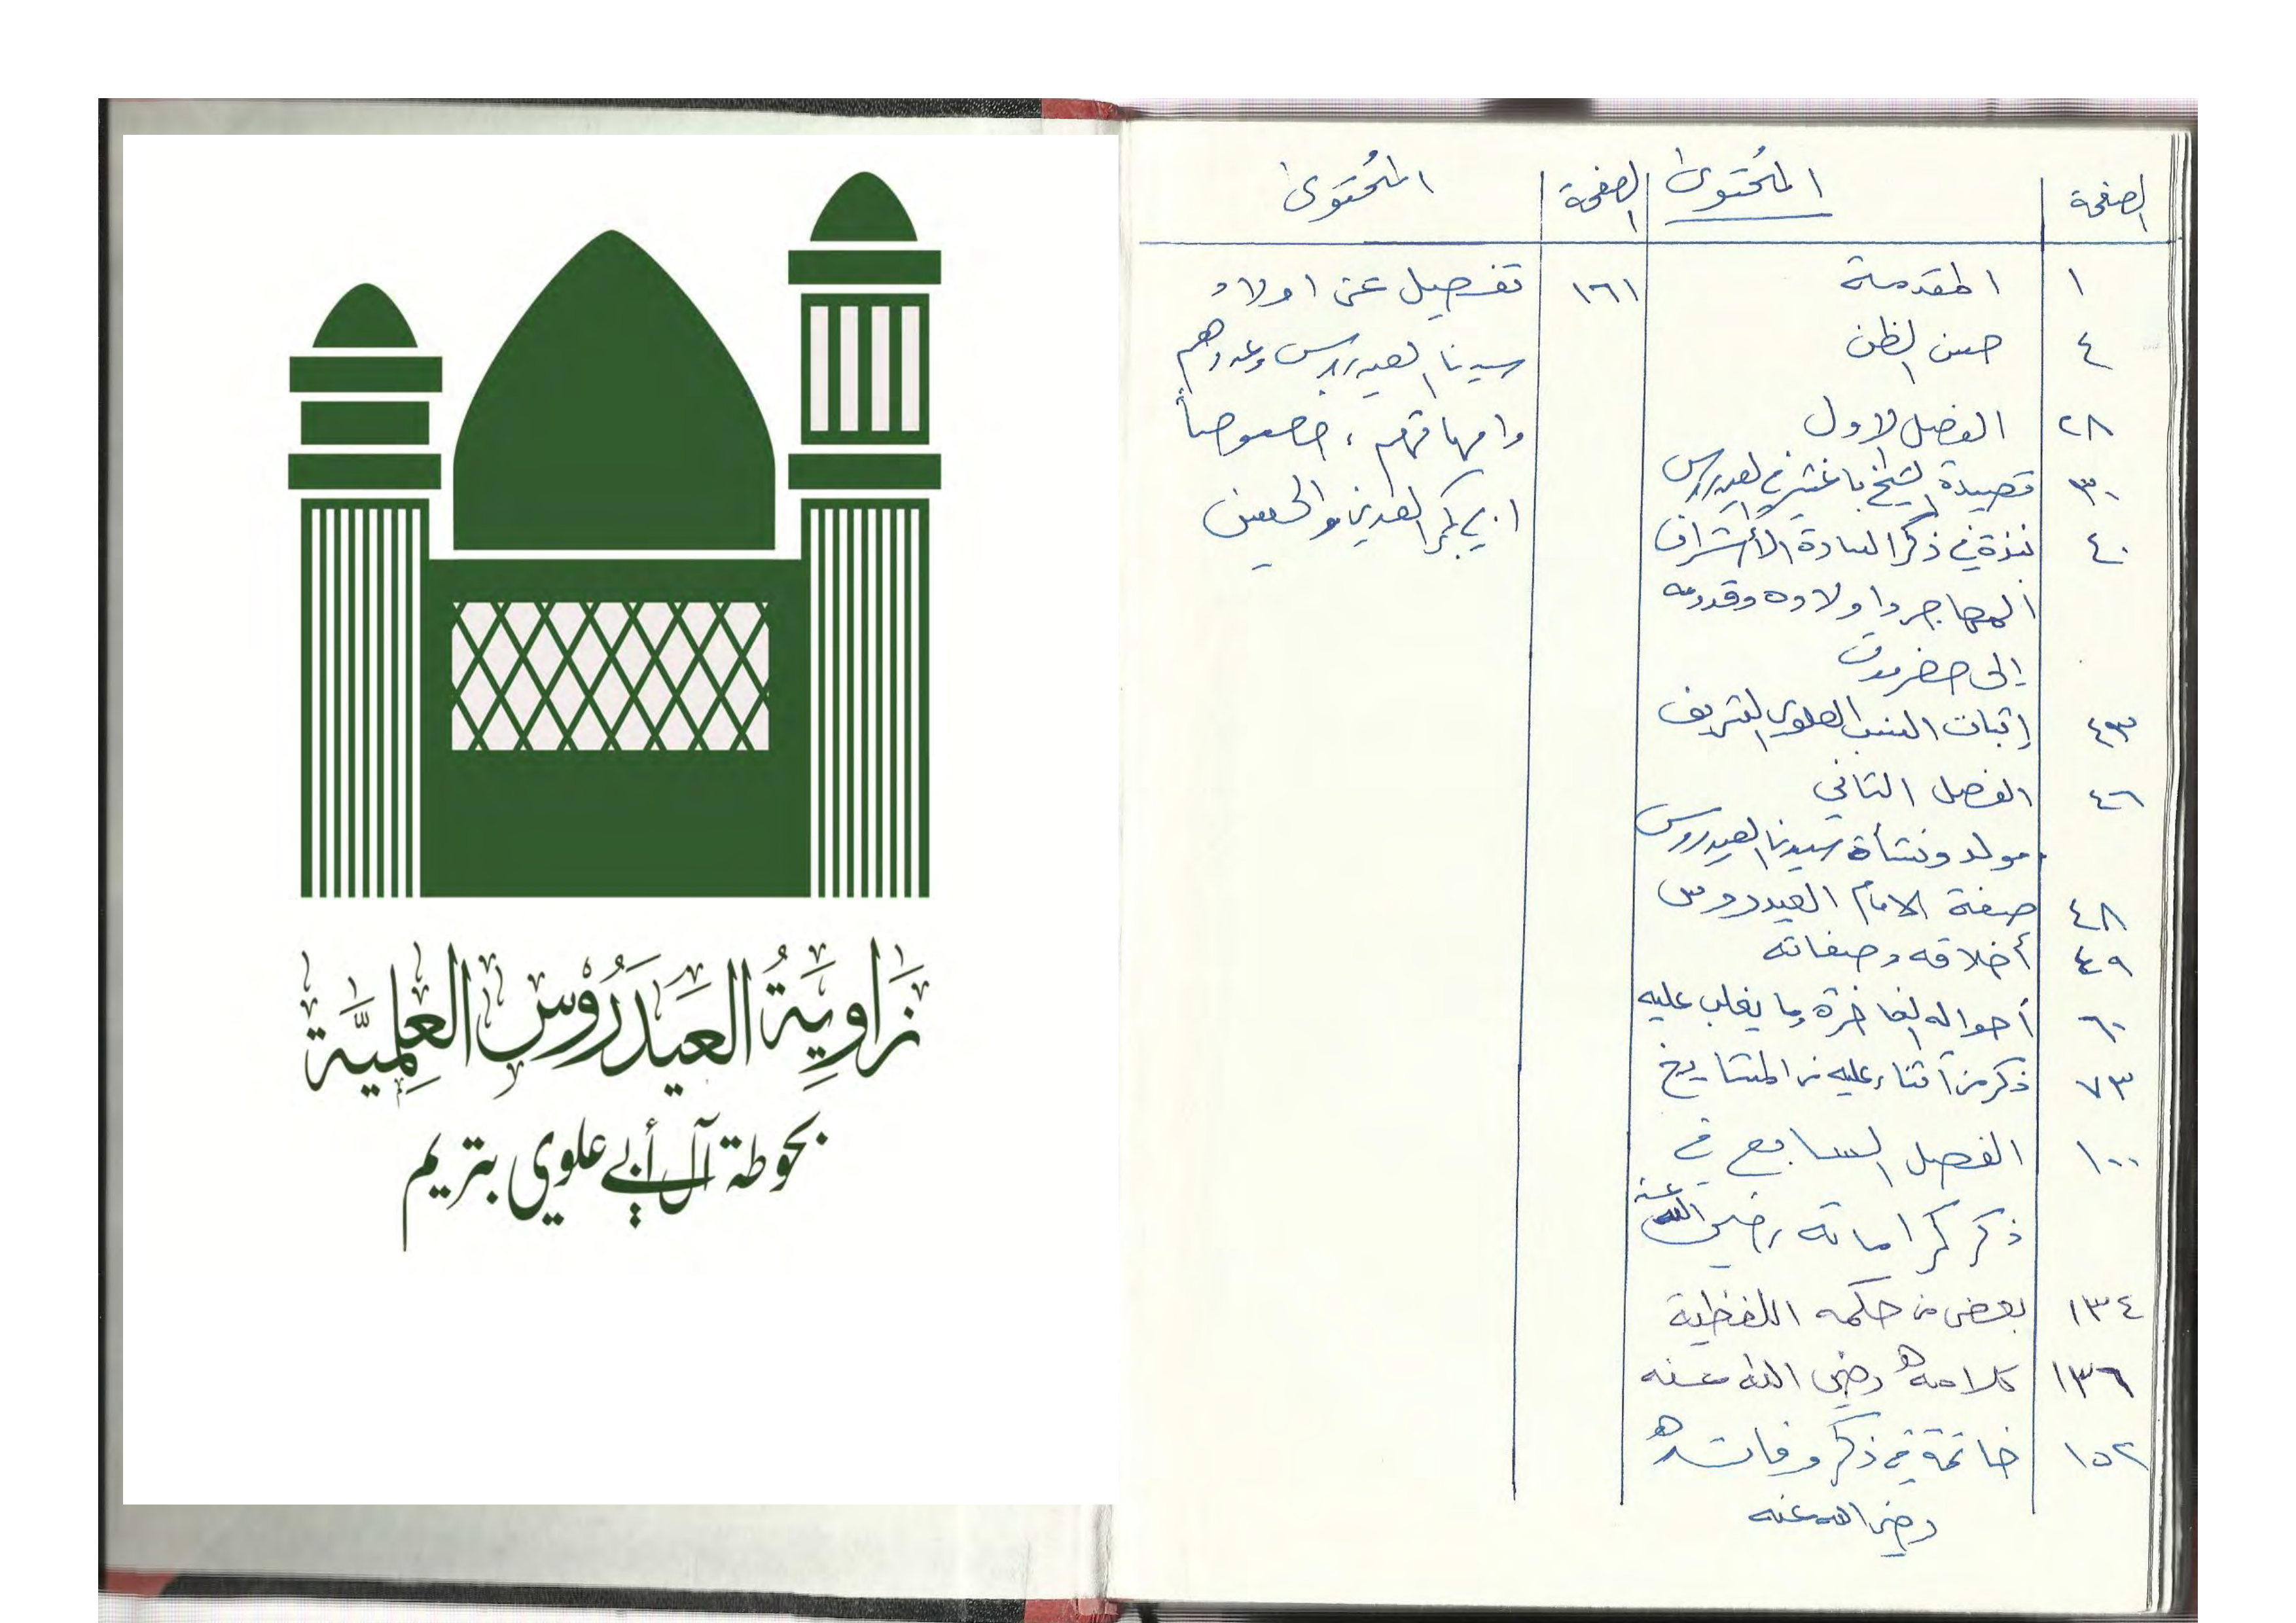 الصفحة المحتوى الصفحة المحتوى
١ المقدمة
٤ حسن الظن
٢٨ الفصل الاول
٣٠ قصيدة الشيخ في العيدروس
٤٠ نبذة في ذكر السادة الأشراف
المهاجر واولاده وقدومه
إلى حضرموت
٤٣ إثبات النسب العلوي الشريف
٤٦ الفصل الثاني
مولد ونشأة سيدنا العيدروس
٤٨ صفة الامام العيدروس
٤٩ أخلاقه وصفاته
٦٠ أحواله الفاخرة وما يغلب عليه
٧٣ ذكر من أثناء عليه من المشايخ
١٠٠ الفصل السابع في
ذكر كراماته رضي الله عنه
١٣٤ بعض من حكمه اللفظية
١٣٦ كلامه رضي الله عنه
١٥٢ خاتمة في ذكر وفاته
رضي الله عنه
١٦١ تفصيل عن اولاد
سيدنا العيدروس وعددهم
وامهاتهم، خصوصاً
ابي بكر العدني والحسين
زَاوِيَةُ العَيدَرُوْس العِلمِيَّة
بحوطة آل أبي علوي بتريم